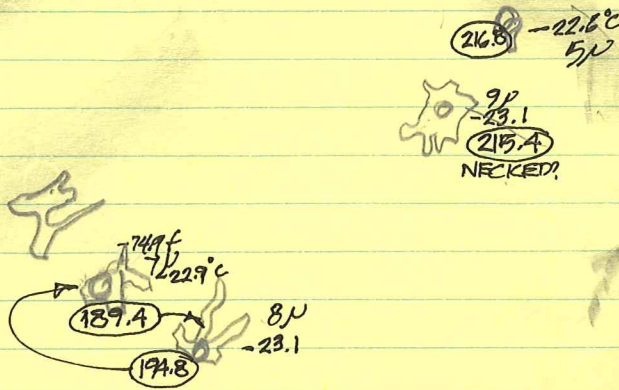 216.8
-22.6°C
5μ
9μ
-23.1
215.4
NECKED?
-74.9f
7μ
-22.9°C
189.4
8μ
-23.1
194.8